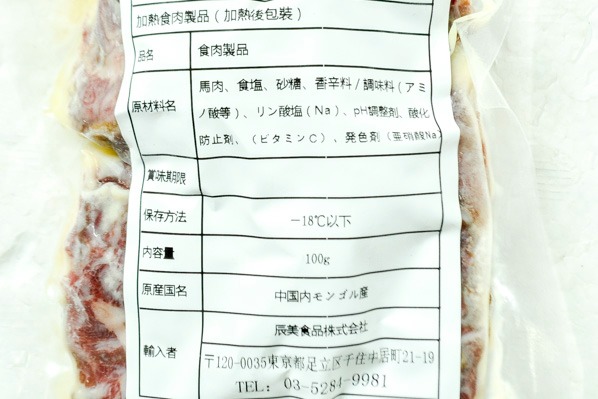 加熱食肉製品(加熱後包裝)
品名
食肉製品
原材料名
馬肉、食塩、砂糖、香辛料/調味料(アミ
ノ酸等)、リン酸塩(Na)、pH調整剤、酸化
防止剤、(ビタミンC)、発色剤(亜硝酸Na
賞味期限
保存方法
-18℃以下
内容量
100g
原産国名
中国内モンゴル産
輸入者
辰美食品株式会社
〒120-0035東京都足立区千住中居町21-19
TEL: 03-5284-9981